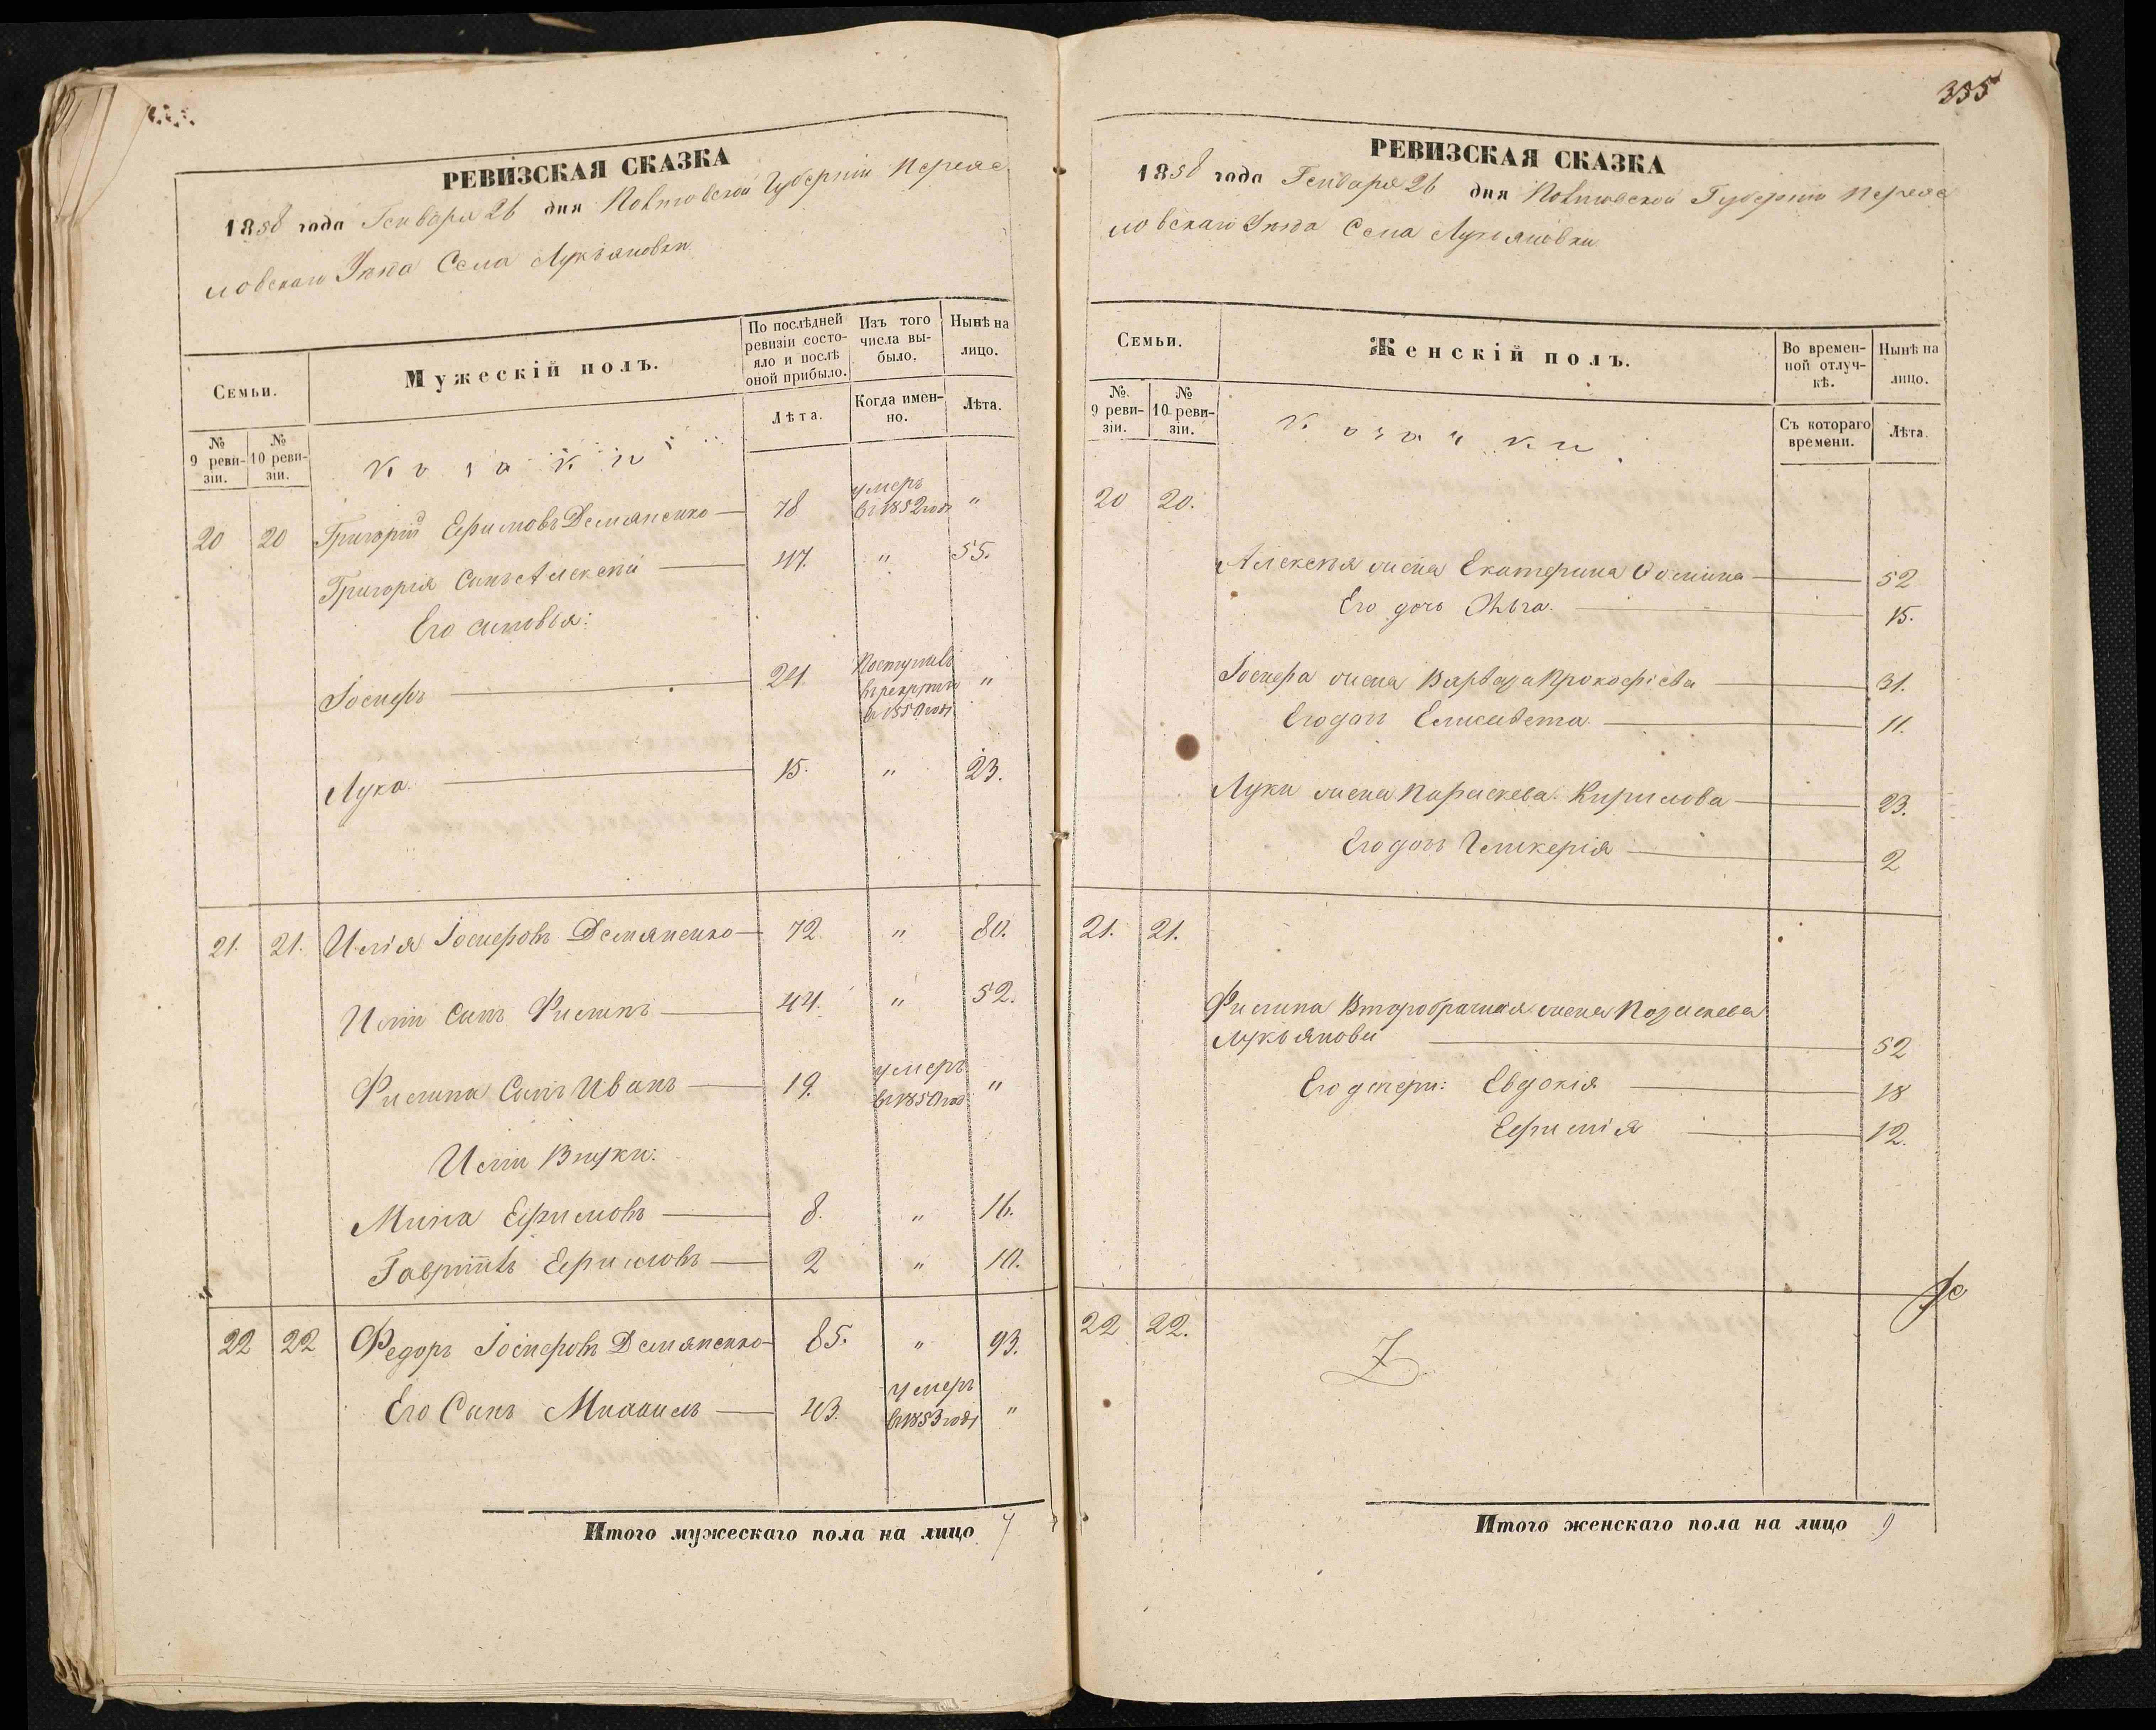 РЕВИЗСКАЯ СКАЗКА
1858 года Генваря 26 дня Полтавской Губерніи Переяс
ловскаго Уезда Села Лукъяновки
Семьи.
Мужескій полъ.
По послѣдней ревизіи состояло и послѣ оной прибыло.
Изъ того числа выбыло.
Нынѣ на лицо.
№ 9 ревизіи.
№ 10 ревизіи.
Лѣта.
Когда именно.
Лѣта.
Козаки
20 20 Григорій Ефимовъ Демяненко 78 умеръ въ 1852 годѣ "
Григорія Сынъ Алексѣй 47. " 55.
Его сыновья:
Іосифъ 24 Поступилъ в рекруты в 1850 годѣ "
Лука. 15. " 23.
21. 21. Илія Іосифовъ Демяненко 72 " 80.
Иліи Сынъ Филипъ 44. " 52.
Филипа Сынъ Иванъ 19. умеръ въ 1850 год "
Иліи Внуки:
Мина Ефимовъ 8. " 16.
Гавріилъ Ефимовъ 2 " 10.
22 22 Федоръ Іосифовъ Демяненко 85. " 93.
Его Сынъ Михаилъ 43. умеръ въ 1853 годѣ "
Итого мужескаго пола на лицо 7
335
РЕВИЗСКАЯ СКАЗКА
1858 года Генваря 26 дня Полтавской Губерніи Переяс
ловскаго Уезда Села Лукъяновки
Семьи.
Женскій полъ.
Во временной отлучкѣ.
Нынѣ на лицо.
№ 9 ревизіи.
№ 10 ревизіи.
Съ котораго времени.
Лѣта.
Козачки.
20 20.
Алексѣя жена Екатерина Фомина 52
Его дочь Ольга. 15.
Іосифа жена Варвара Прокофіева 31.
Его дочь Елисавета 11.
Луки жена Параскева Кирилова 23.
Его дочь Гликерія 2
21. 21.
Филипа Второбрачная жена Параскева
Лукъянова 52
Его дочери: Евдокія 18
Ефимія 12.
22 22.
Итого женскаго пола на лицо 9